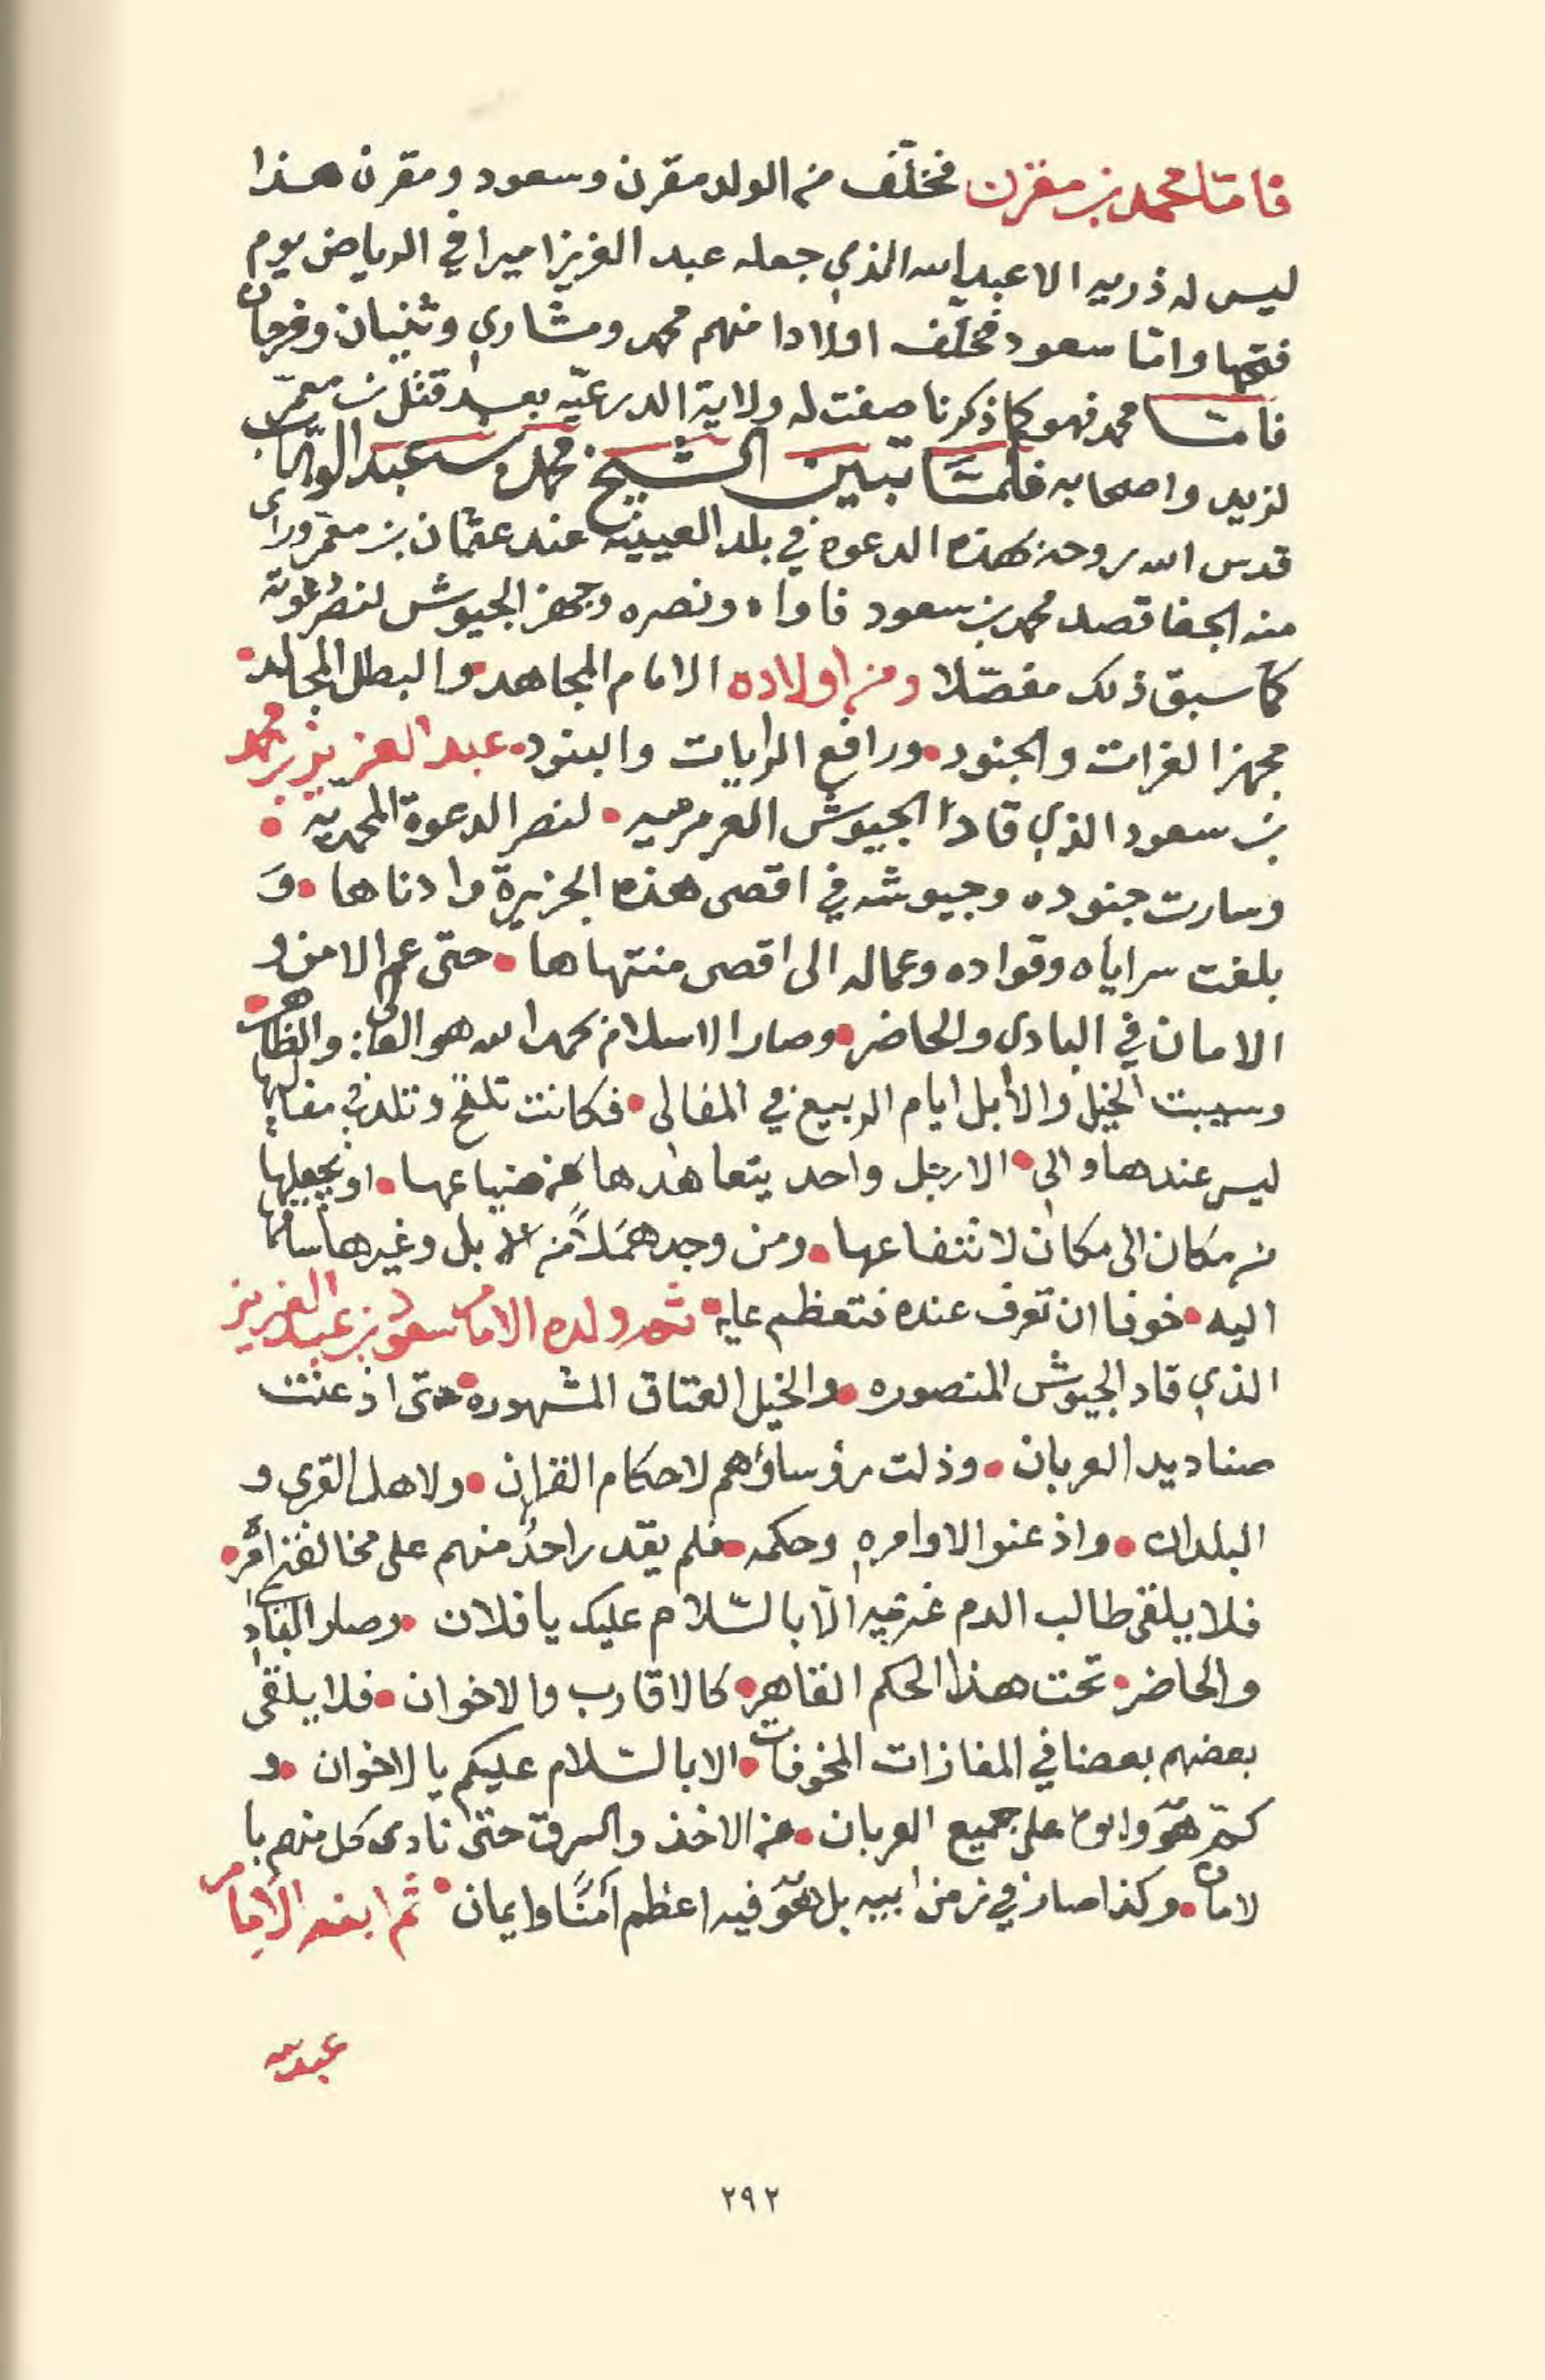 فامّا محمد بن مقرن فخلّف من الولد مقرن وسعود ومقرن هذا
ليس له ذريه الا عبد الله الذي جعله عبد العزيز اميرا في الرياض يوم
فتحها وامّا سعود فخلّف اولادا منهم محمد ومشاري وثنيان وفرحان
فامّا محمد فهو كما ذكرنا صفت له ولاية الدرعيّه بعد قتل بن معمّر
لزيد واصحابه فلمّا تبين الشيخ محمد بن عبد الوهّاب
قدس الله روحه بهذه الدعوه في بلد العيينه عند عثمان بن معمّر وراى
منه الجفا قصد محمد بن سعود فاواه ونصره وجهز الجيوش لنصر دعوته
كما سبق ذلك مفصّلا ومن اولاده الامام المجاهد والبطل المجالد
مجهز الغزات والجنود ورافع الرايات والبنود عبد العزيز بن محمد
بن سعود الذي قاد الجيوش العرمرميه لنصر الدعوة المحمديّه
وسارت جنوده وجيوشه في اقصى هذه الجزيرة وادناها وَ
بلغت سراياه وقواده وعماله الى اقصى منتهاها حتى عم الامن و
الامان في البادى والحاضر وصار الاسلام بحمد الله هو العالى والظاهر
وسيبت الخيل والابل ايام الربيع في المفالى فكانت تلقح وتلد في مفاليها
ليس عندها والي الا رجل واحد يتعاهدها عن ضياعها او يجعلها
من مكان الى مكان لانتفاعها ومن وجد همَلاً من الابل وغيرها ساقها
اليه خوفا ان تعرف عنده فتعظم عليه ثم ولده الامام سعود بن عبد العزيز
الذي قاد الجيوش المنصوره والخيل العتاق المشهوره حتى اذعنت
صناديد العربان وذلت رؤساؤهم لاحكام القران ولاهل القرى و
البلدان واذعنوا لاوامره وحكمه فلم يقدر احدٌ منهم على مخالفة امره
فلا يلقى طالب الدم غريمه الّا بالسّلام عليك يا فلان وصار الباد
والحاضر تحت هذا الحكم القاهر كالاقارب والاخوان فلا يلقى
بعضهم بعضا في المفازات المخوفات الا بالسّلام عليكم يا الاخوان و
كبّر هوّ وابوه على جميع العربان عن الاخذ والسرق حتى نادى كل منهم با
لامان وكذا صار في زمن ابيه بل هوّ فيه اعظم امنًا وايمان ثم ابنه الامام
عبد الله
٢٩٢